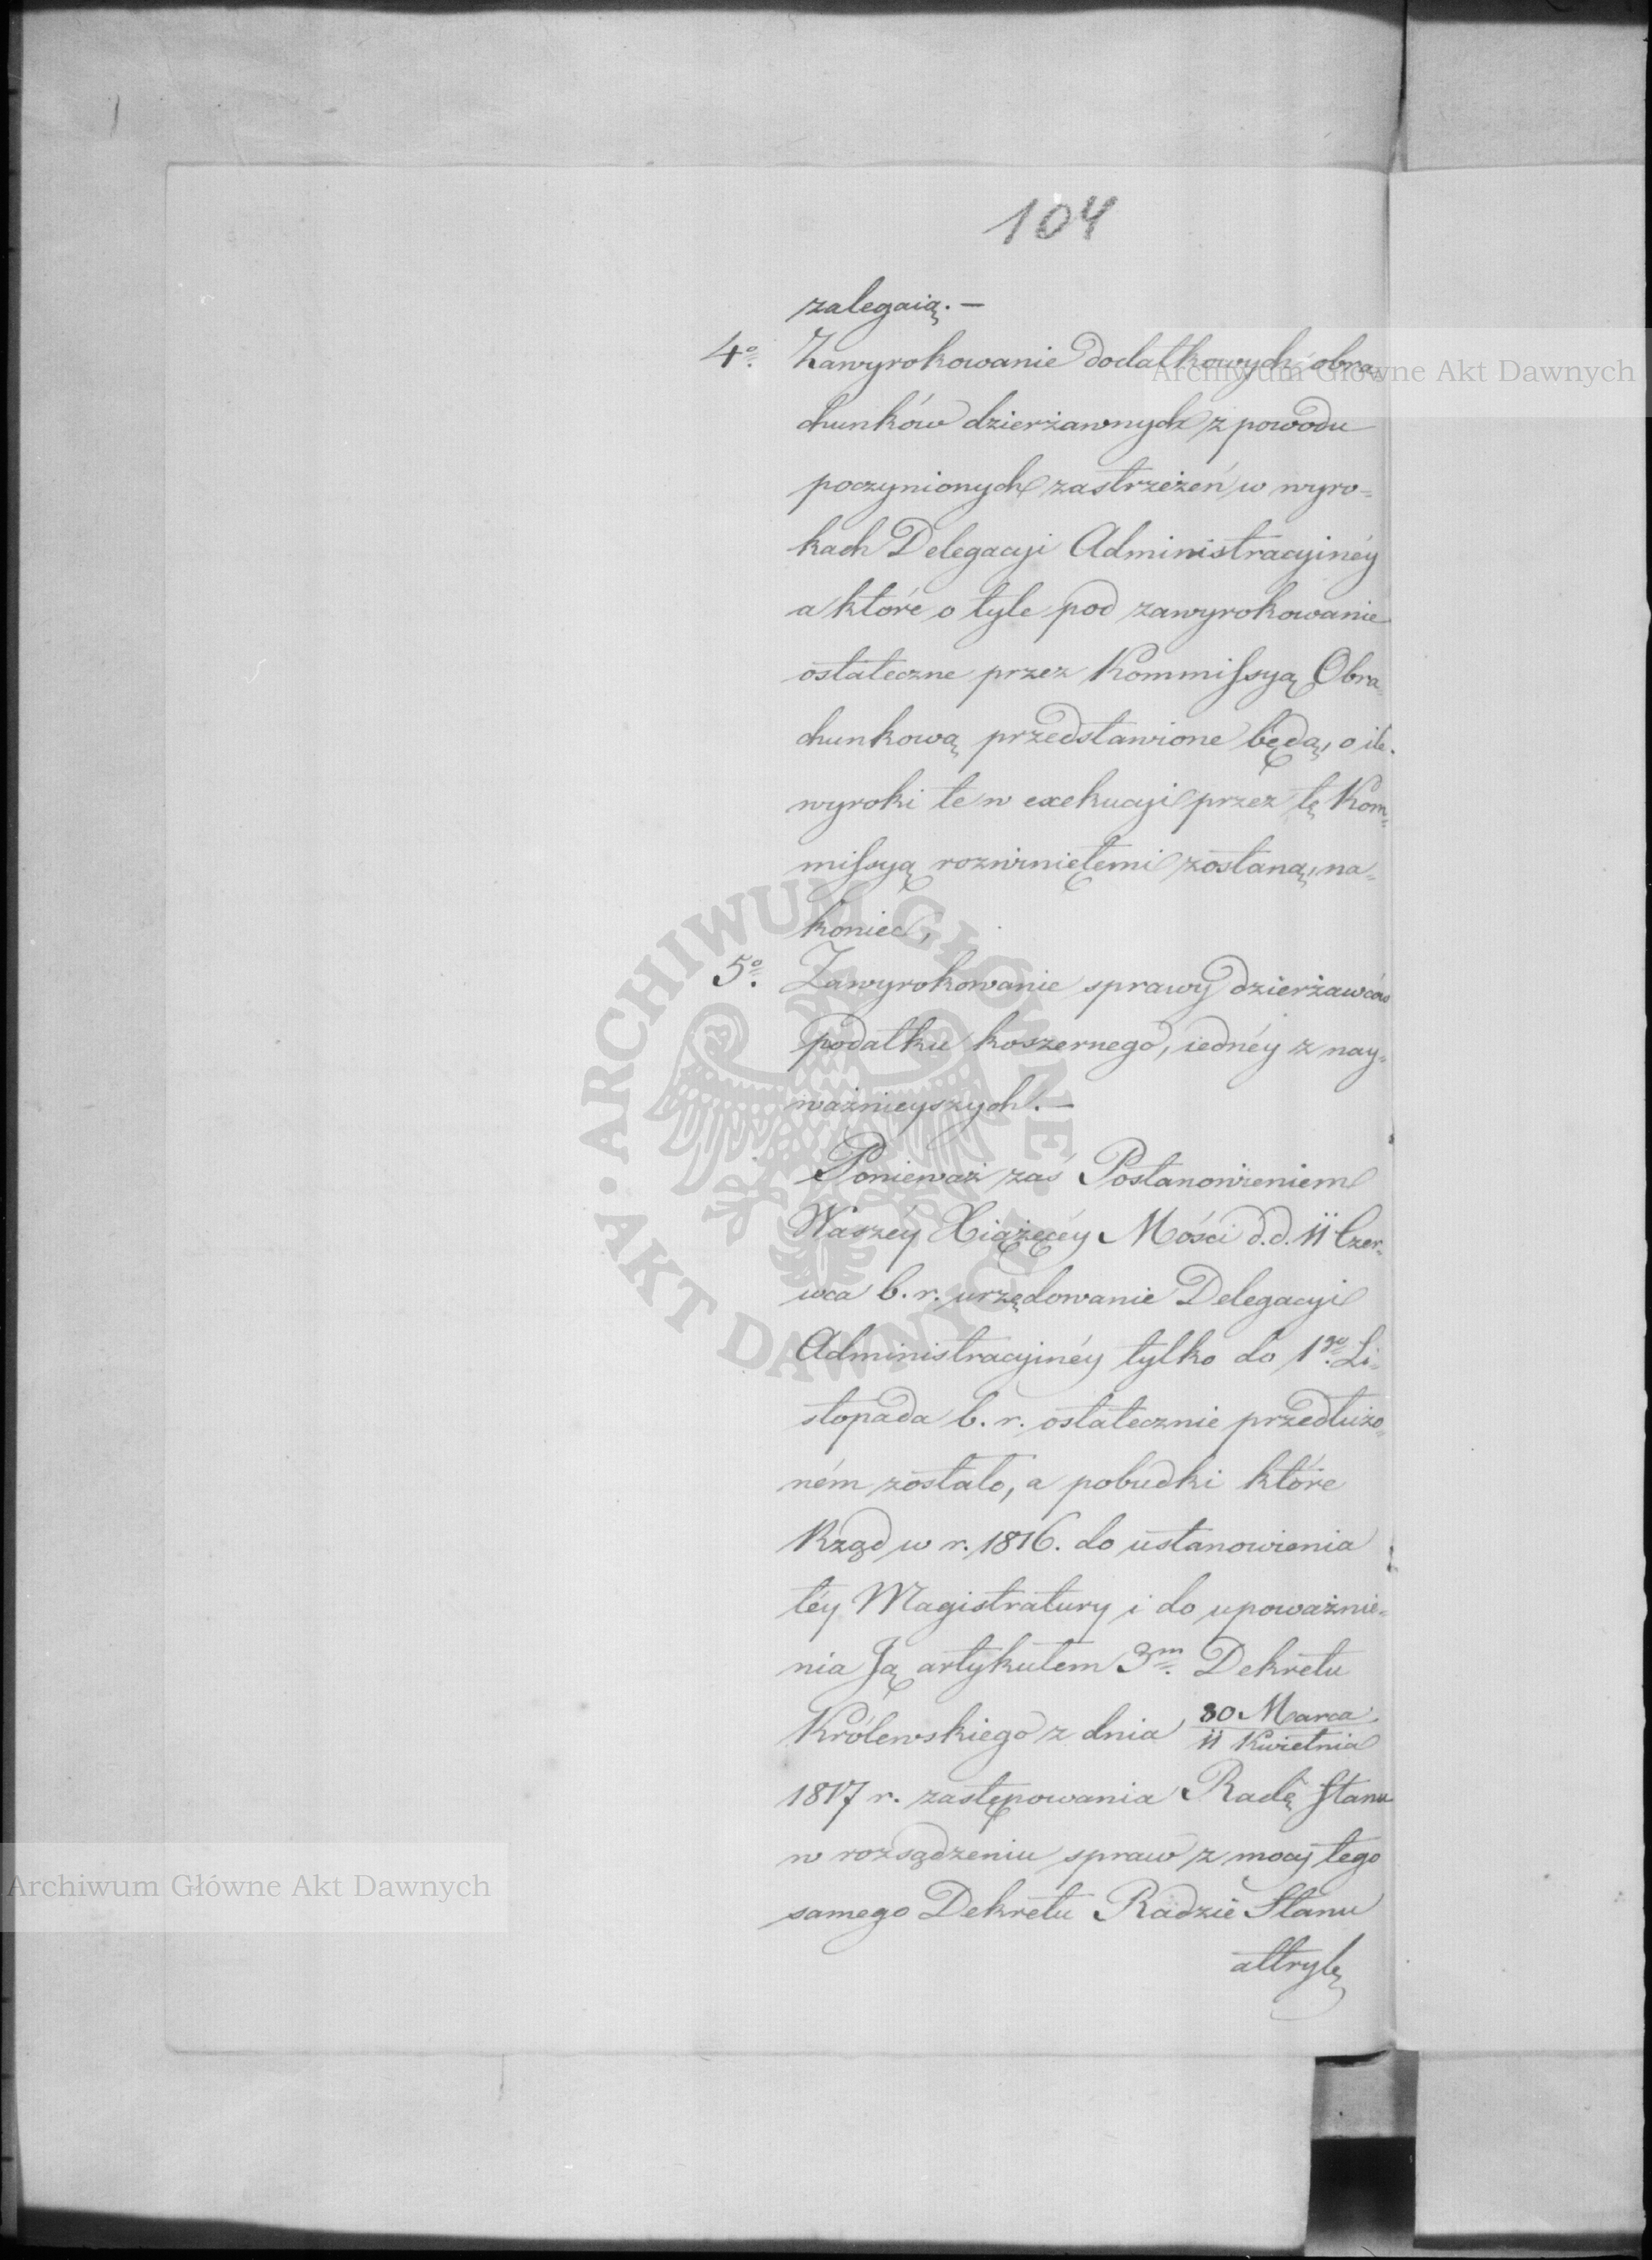 104
zalegaią. —
4o. Zawyrokowanie dodatkowych obra=
chunków dzierżawnych z powodu
poczynionych zastrzeżeń w wyro=
kach Delegacyi Administracyinéy
a które o tyle pod zawyrokowanie
ostateczne przez Kommissyą Obra=
chunkową przedstawione będą, o ile
wyroki te w exekucyi przez tę Kom=
missyą rozwiniętemi zostaną, na=
koniec,
5o. Zawyrokowanie sprawy dzierżawców
podatku koszernego, iednéy z nay=
ważnieyszych. —
Ponieważ zaś Postanowieniem
Waszéy Xiążęcéy Mości d. d. 11 Czer=
wca b. r. urzędowanie Delegacyi
Administracyinéy tylko do 1go. Li=
stopada b. r. ostatecznie przedłużo=
ném zostało, a pobudki które
Rząd w r. 1816. do ustanowienia
téy Magistratury i do upoważnie=
nia Ją artykułem 3m. Dekretu
Królewskiego z dnia 30 Marca
11 Kwietnia
1817 r. zastępowania Radę Stanu
w rozsądzeniu spraw z mocy tego
samego Dekretu Radzie Stanu
attrybę
Archiwum Główne Akt Dawnych
ARCHIWUM GŁÓWNE · AKT DAWNYCH ·
Archiwum Główne Akt Dawnych